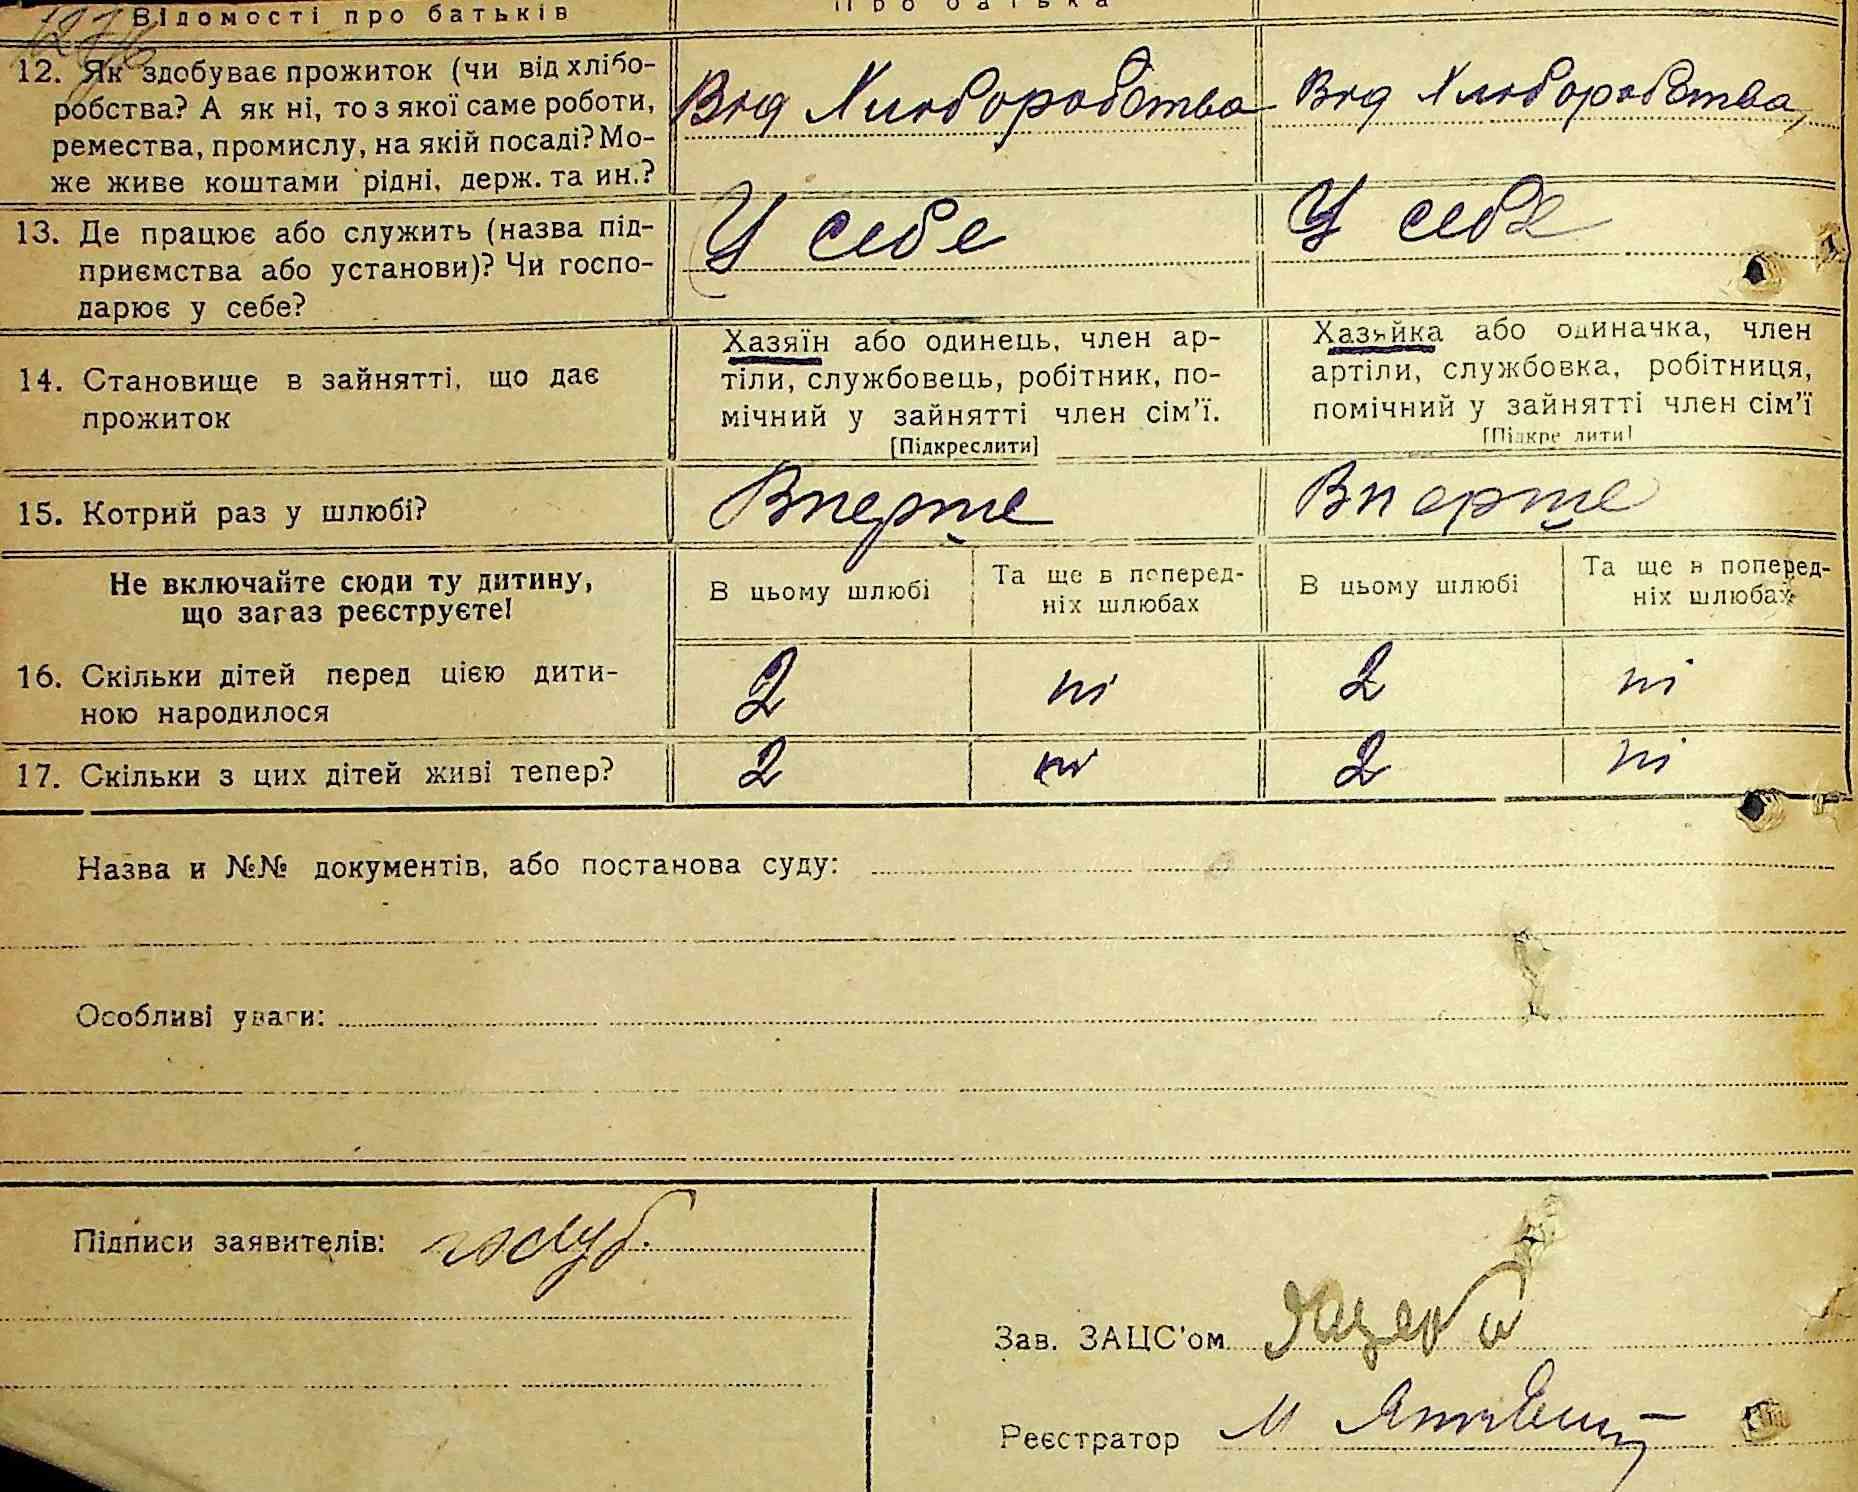 Відомості про батьків
Про батька
12. Як здобуває прожиток (чи від хлібо-
робства? А як ні, то з якої саме роботи,
ремества, промислу, на якій посаді? Мо-
же живе коштами рідні, держ. та ин.?
Від Хліборобства
Від Хліборобства,
13. Де працює або служить (назва під-
приємства або установи)? Чи госпо-
дарює у себе?
У себе
У себе
14. Становище в зайнятті, що дає
прожиток
Хазяїн або одинець, член ар-
тіли, службовець, робітник, по-
мічний у зайнятті член сім'ї.
[Підкреслити]
Хазяйка або одиначка, член
артіли, службовка, робітниця,
помічний у зайнятті член сім'ї
[Підкреслити]
15. Котрий раз у шлюбі?
Вперше
Вперше
Не включайте сюди ту дитину,
що загаз реєструєте!
В цьому шлюбі
Та ще в поперед-
ніх шлюбах
В цьому шлюбі
Та ще в поперед-
ніх шлюбах
16. Скільки дітей перед цією дити-
ною народилося
2 ні 2 ні
17. Скільки з цих дітей живі тепер?
2 ні 2 ні
Назва и №№ документів, або постанова суду:
Особливі уваги:
Підписи заявителів:
Зав. ЗАЦС'ом
Реєстратор М